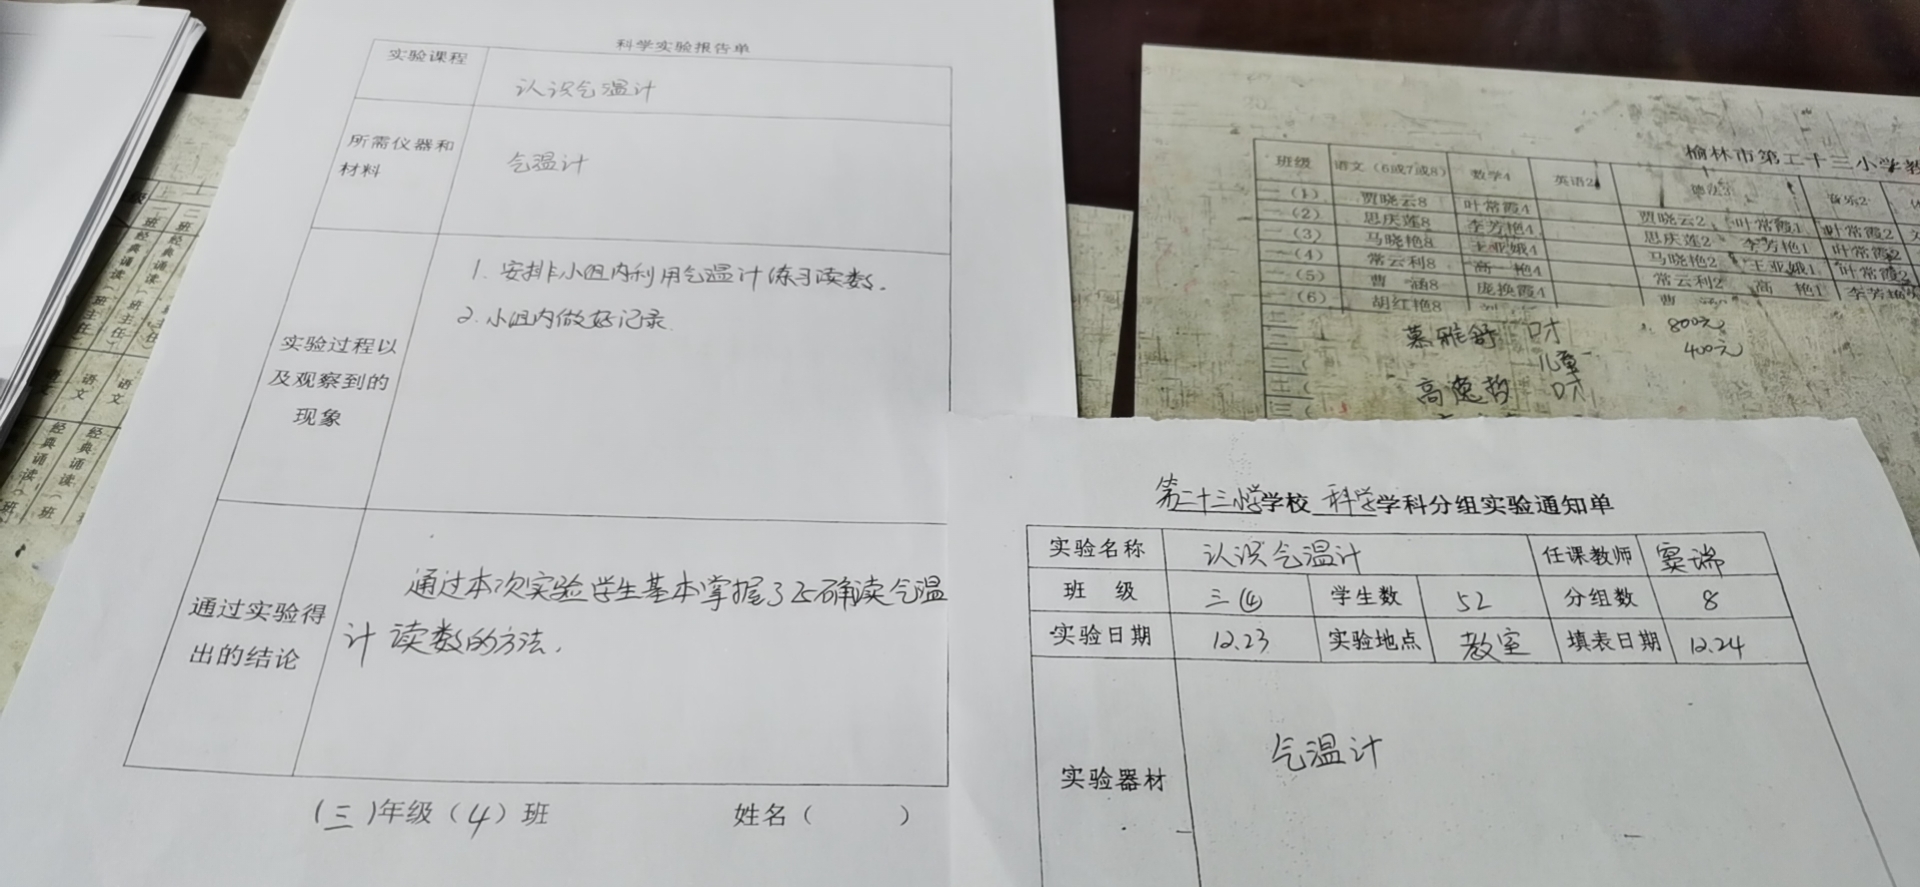 科学实验报告单
实验课程
认识气温计
所需仪器和
材料
气温计
实验过程以
及观察到的
现象
1. 安排小组内利用气温计练习读数.
2. 小组内做好记录.
通过实验得
出的结论
通过本次实验学生基本掌握了正确读气温
计读数的方法.
(三)年级(4)班 姓名( )
第二十三小学学校 科学学科分组实验通知单
实验名称 认识气温计 任课教师 窦瑞
班 级 三(4) 学生数 52 分组数 8
实验日期 12.23 实验地点 教室 填表日期 12.24
实验器材 气温计
榆林市第二十三小学教
班级 语文(6或7或8) 数学4 英语2 德法3 音乐2
一(1) 贾晓云8 叶常霞4 贾晓云2 叶常霞1 叶常霞2
一(2) 思庆莲8 李芳艳4 思庆莲2 李芳艳1 叶常霞2
一(3) 马晓艳8 王亚娥4 马晓艳2 王亚娥1 叶常霞2
一(4) 常云利8 高 艳4 常云利2 高 艳1 李芳艳
一(5) 曹 涵8 庞换霞4 曹
一(6) 胡红艳8
慕雅舒 口才 800元
儿童 400元
高 哲 口才
二 班 经典诵读(班主任)
语文 语文
经典诵读(班